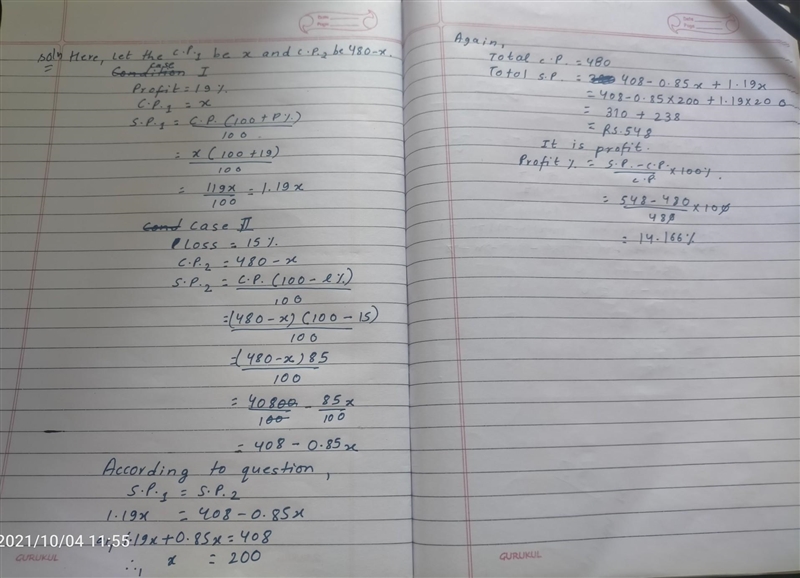 Soln Here, Let the C.P.1 be x and C.P.2 be 480-x.
case
Condition I
Profit = 19%
C.P.1 = x
S.P.1 = C.P. (100+P%)
100
= x(100+19)
100
= 119x = 1.19x
100
Cond Case II
Loss = 15%
C.P.2 = 480-x
S.P.2 = C.P. (100-l%)
100
= (480-x) (100-15)
100
= (480-x) 85
100
= 40800 - 85x
100 100
= 408 - 0.85x
According to question,
S.P.1 = S.P.2
1.19x = 408 - 0.85x
1.19x+0.85x = 408
∴, x = 200
2021/10/04 11:55
GURUKUL
Again,
Total C.P. = 480
Total S.P. = 408-0.85x + 1.19x
= 408-0.85×200 + 1.19×200
= 310 + 238
= Rs.548
It is profit.
Profit % = S.P.-C.P. ×100%.
C.P
= 548-480 ×100
480
= 14.166%
GURUKUL